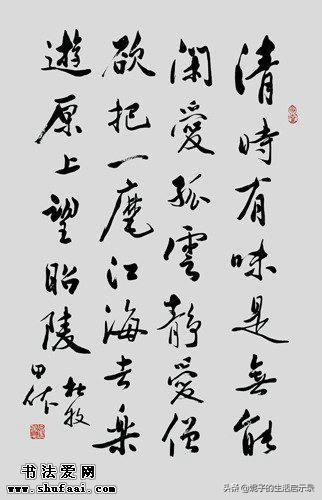 清時有味是無能
閑愛孤雲靜愛僧
欲把一麾江海去樂
遊原上望昭陵
杜牧
书法爱网
www.shufaai.com
头条 @妮子的生活启示录